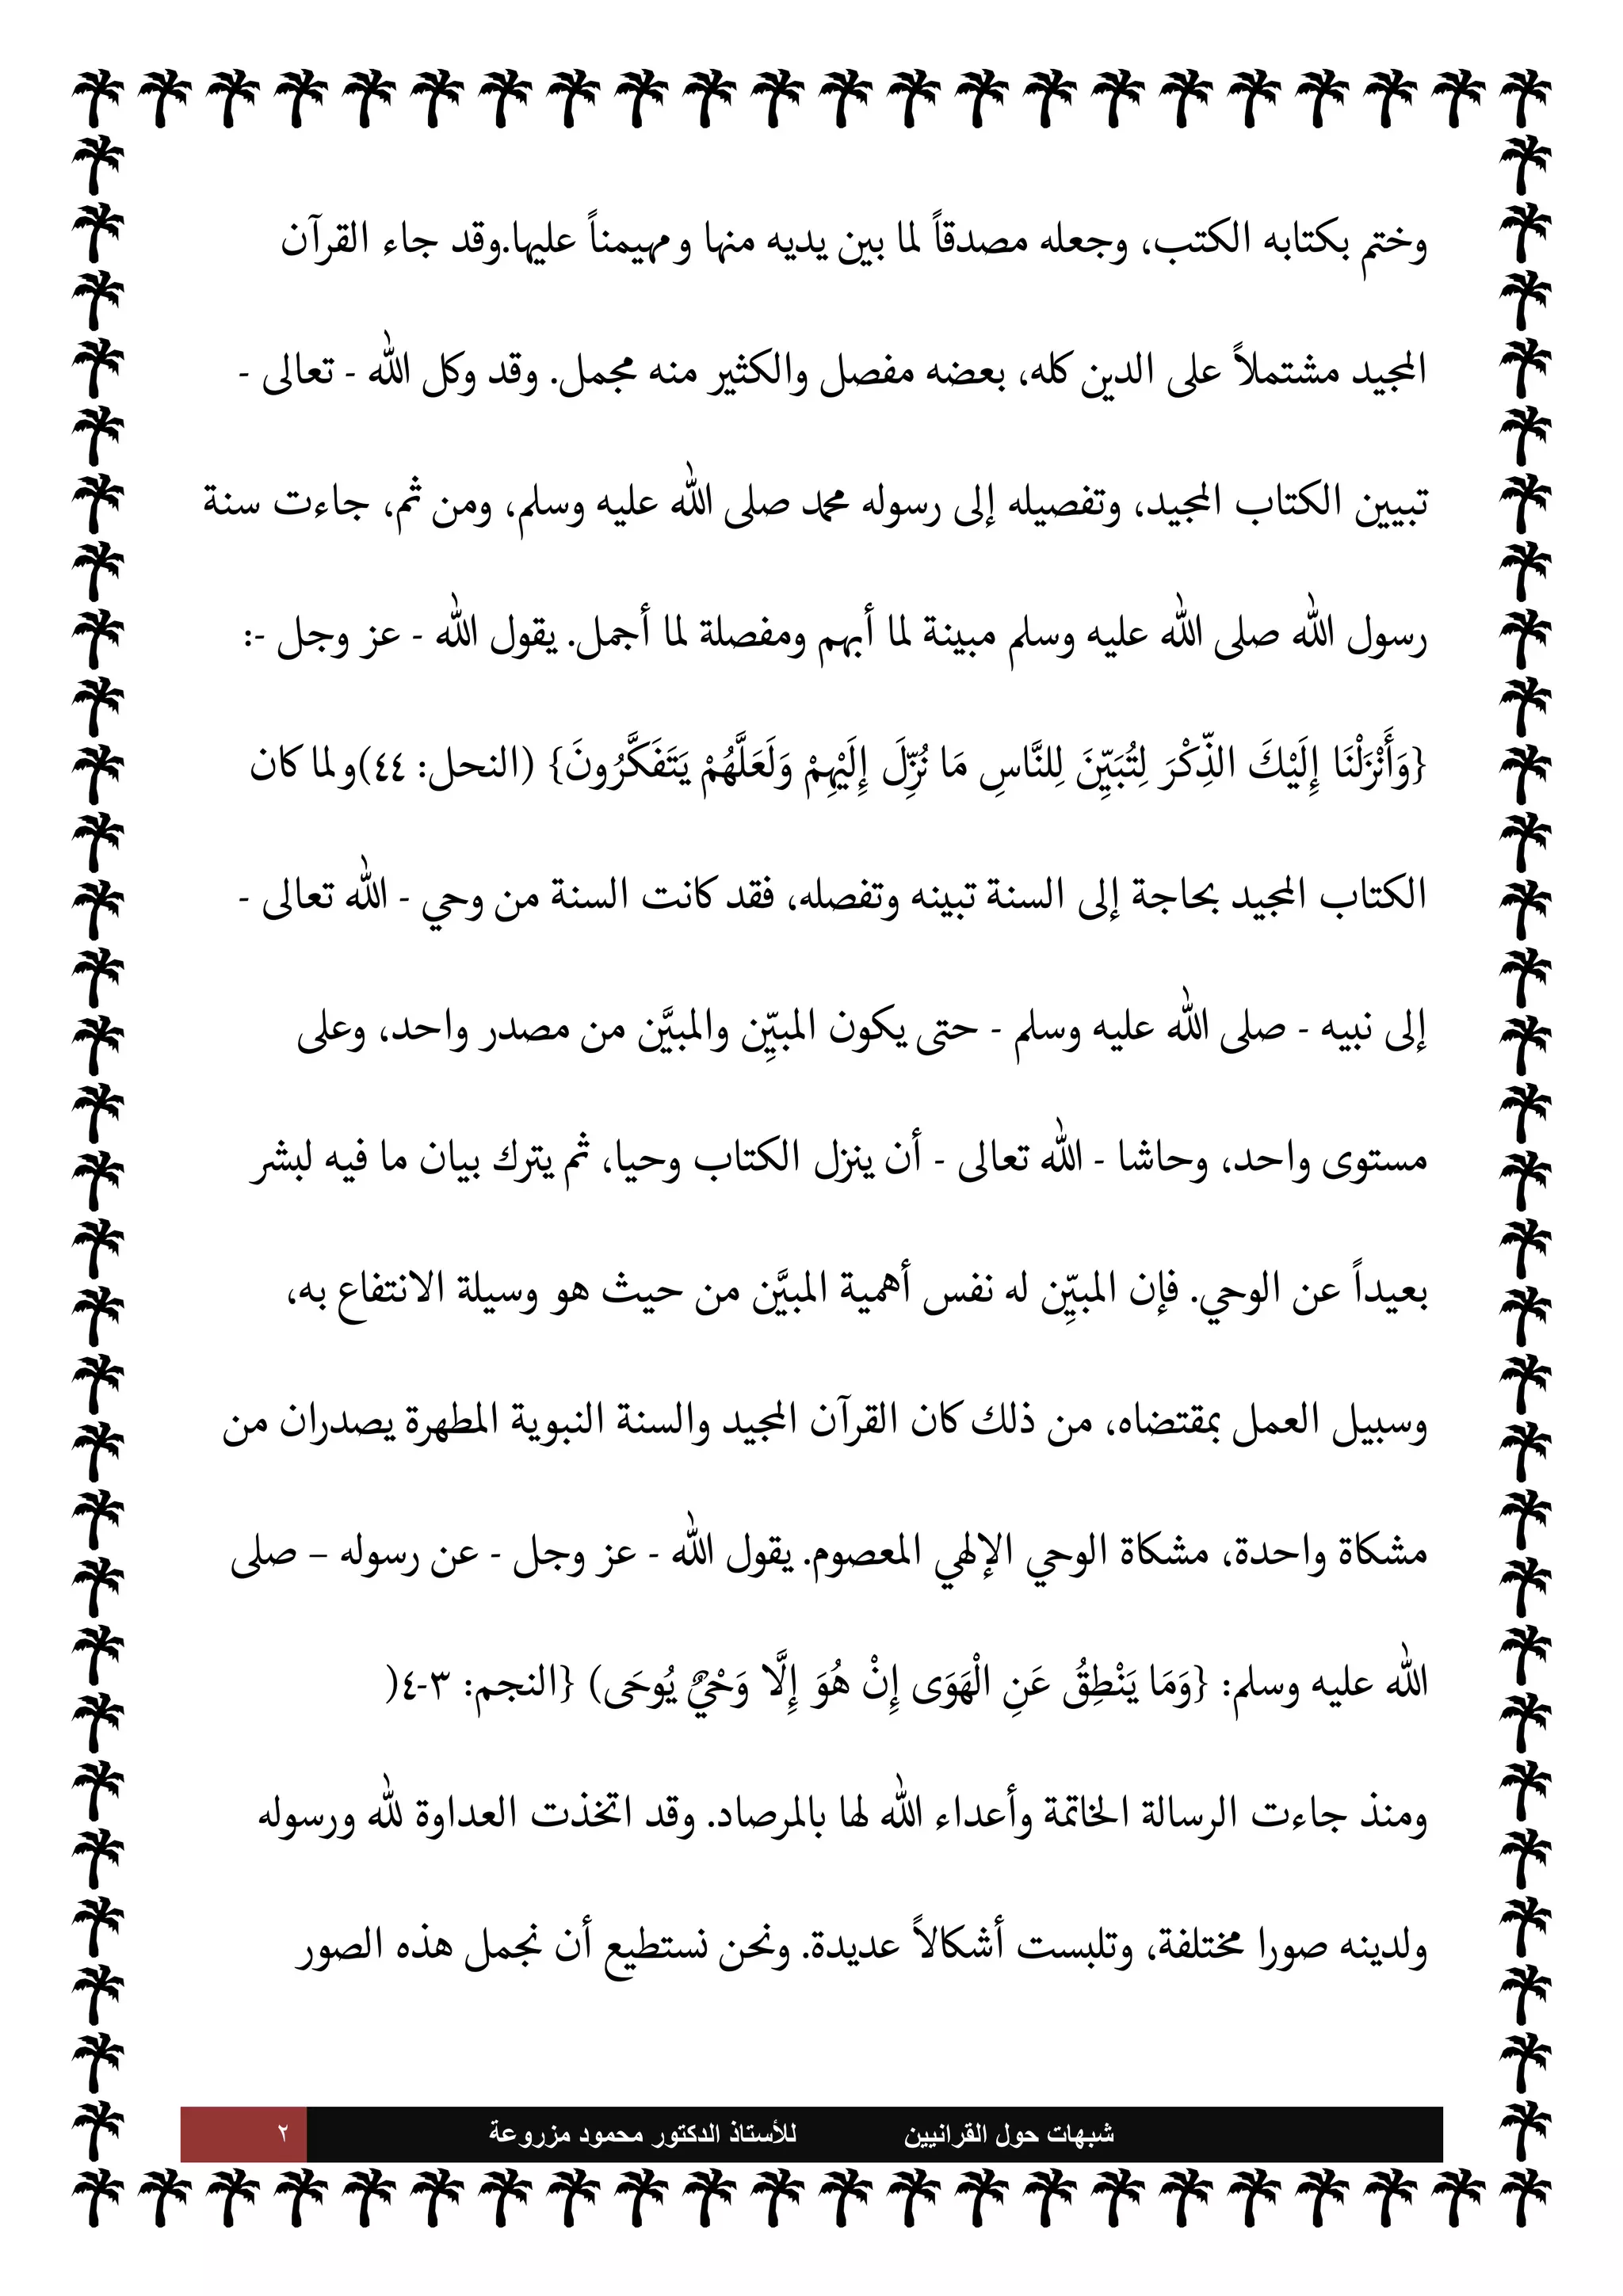 وختم بكتابه الكتب، وجعله مصدقاً لما بين يديه منها ومهيمناً عليها.وقد جاء القرآن
المجيد مشتملاً على الدين كله، بعضه مفصل والكثير منه مجمل. وقد وكل الله - تعالى -
تبيين الكتاب المجيد، وتفصيله إلى رسوله محمد صلى الله عليه وسلم، ومن ثم، جاءت سنة
رسول الله صلى الله عليه وسلم مبينة لما أبهم ومفصلة لما أجمل. يقول الله - عز وجل -:
{وَأَنْزَلْنَا إِلَيْكَ الذِّكْرَ لِتُبَيِّنَ لِلنَّاسِ مَا نُزِّلَ إِلَيْهِمْ وَلَعَلَّهُمْ يَتَفَكَّرُونَ} (النحل: ٤٤)ولما كان
الكتاب المجيد بحاجة إلى السنة تبينه وتفصله، فقد كانت السنة من وحي - الله تعالى -
إلى نبيه - صلى الله عليه وسلم - حتى يكون المبيِّن والمبيَّن من مصدر واحد، وعلى
مستوى واحد، وحاشا - الله تعالى - أن ينزل الكتاب وحيا، ثم يترك بيان ما فيه لبشر
بعيداً عن الوحي. فإن المبيِّن له نفس أهمية المبيَّن من حيث هو وسيلة الانتفاع به،
وسبيل العمل بمقتضاه، من ذلك كان القرآن المجيد والسنة النبوية المطهرة يصدران من
مشكاة واحدة، مشكاة الوحي الإلهي المعصوم. يقول الله - عز وجل - عن رسوله – صلى
الله عليه وسلم: {وَمَا يَنْطِقُ عَنِ الْهَوَى إِنْ هُوَ إِلَّا وَحْيٌ يُوحَى) {النجم: ٣-٤(
ومنذ جاءت الرسالة الخاتمة وأعداء الله لها بالمرصاد. وقد اتخذت العداوة لله ورسوله
ولدينه صورا مختلفة، وتلبست أشكالاً عديدة. ونحن نستطيع أن نجمل هذه الصور
شبهات حول القرانيين للأستاذ الدكتور محمود مزروعة ٢